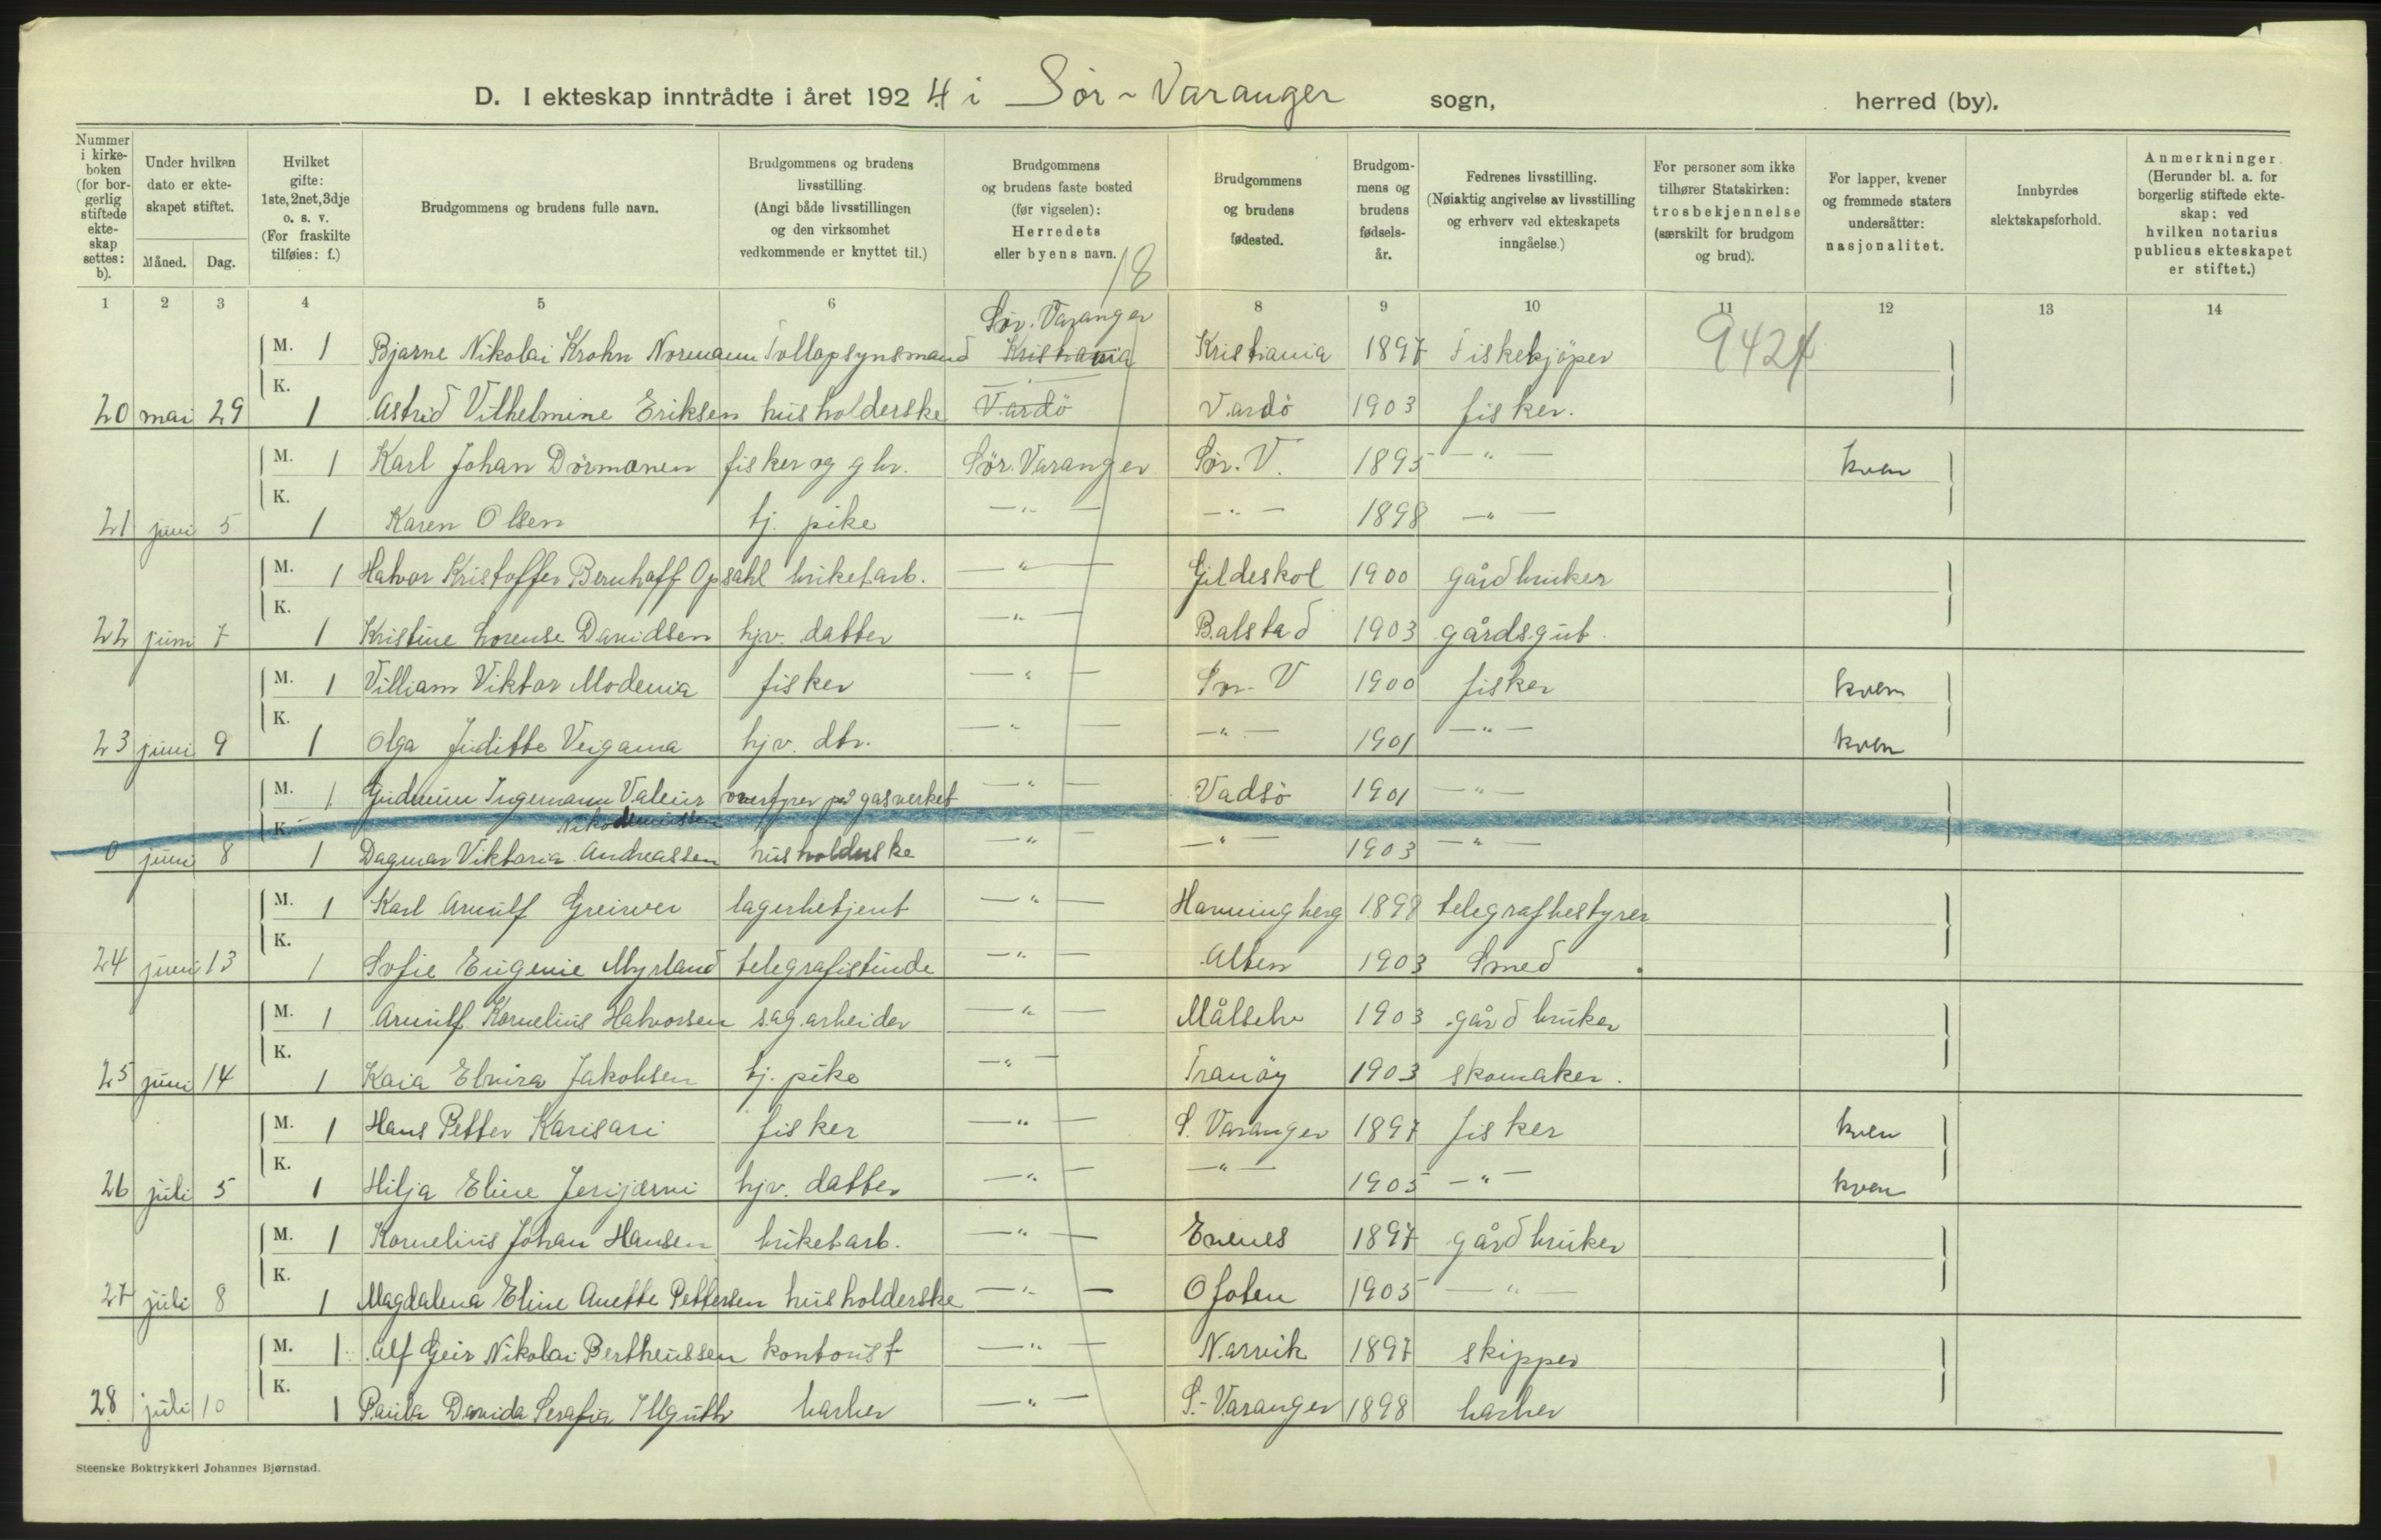 D. I ekteskap inntrådte i året 1924 i Sör-Varanger sogn, herred (by).
Nummer i kirke-boken (for bor-gerlig stiftede ekte-skap settes: b).
Under hvilken dato er ekte-skapet stiftet.
Måned. Dag.
Hvilket gifte: 1ste, 2net, 3dje o. s. v. (For fraskilte tilføies: f.)
Brudgommens og brudens fulle navn.
Brudgommens og brudens livsstilling. (Angi både livsstillingen og den virksomhet vedkommende er knyttet til.)
Brudgommens og brudens faste bosted (før vigselen): Herredets eller byens navn.
Brudgommens og brudens fødested.
Brudgom-mens og brudens fødsels-år.
Fedrenes livsstilling. (Nøiaktig angivelse av livsstilling og erhverv ved ekteskapets inngåelse.)
For personer som ikke tilhører Statskirken: trosbekjennelse (særskilt for brudgom og brud).
For lapper, kvener og fremmede staters undersåtter: nasjonalitet.
Innbyrdes slektskapsforhold.
Anmerkninger. (Herunder bl. a. for borgerlig stiftede ekte-skap: ved hvilken notarius publicus ekteskapet er stiftet.)
18
1 2 3 4 5 6 8 9 10 11 12 13 14
Sör. Varanger
M. 1 Bjarne Nikolai Krohn Normann Tollopsynsmand Kristiania Kristiania 1897 Fiskekjöper 9424
20 mai 29 K. 1 Astrid Vilhelmine Eriksen husholderske Vardö Vardö 1903 fisker.
M. 1 Karl Johan Dörmænen fisker og gbr. Sör. Varanger Sör. V. 1895 — " — kven
21 juni 5 K. 1 Karen Olsen tj. pike — " — — " — 1898 — " —
M. 1 Halvor Kristoffer Bernhoff Opsahl briketarb. — " — Gildeskol 1900 gårdbruker
22 juni 7 K. 1 Kristine Lorense Davidsen hjv. datter — " — Balstad 1903 gårdsgut.
M. 1 Villiam Viktor Modenia fisker — " — Sör. V 1900 fisker kven
23 juni 9 K. 1 Olga Juditte Veigama hjv. dtr. — " — — " — 1901 — " — kven
M. 1 Gudmun Ingemann overfyrer på gasverket — " — Vadsö 1901 — " —
Nikodemussen
0 juni 8 K. 1 Dagmar Viktoria Andreassen husholderske — " — — " — 1903 — " —
M. 1 Karl Arnulf Greiner lagerbetjent — " — Havningberg 1898 telegrafbestyrer
24 juni 13 K. 1 Sofie Eugenie Myrland telegrafistinde — " — Alten 1903 Smed
M. 1 Arnulf Kornelius Halvorsen sag.arbeider — " — Målselv 1903 gårdbruker
25 juni 14 K. 1 Kaia Elvira Jakobsen tj. pike — " — Tranöy 1903 skomaker.
M. 1 Hans Petter Karisari fisker — " — S. Varanger 1897 fisker kven
26 juli 5 K. 1 Hilja Eline Jerijærvi hjv. datter — " — — " — 1905 — " — kven
M. 1 Kornelius Johan Hansen briketarb. — " — Evenes 1897 gårdbruker
27 juli 8 K. 1 Magdalena Eline Anette Pettersen husholderske — " — Ofoten 1905 — " —
M. 1 Alf Geir Nikolai Bertheussen kontorist — " — Narvik 1897 skipper
28 juli 10 K. 1 Paula Davida Serafia barber — " — S.-Varanger 1898 barber
Steenske Boktrykkeri Johannes Bjørnstad.